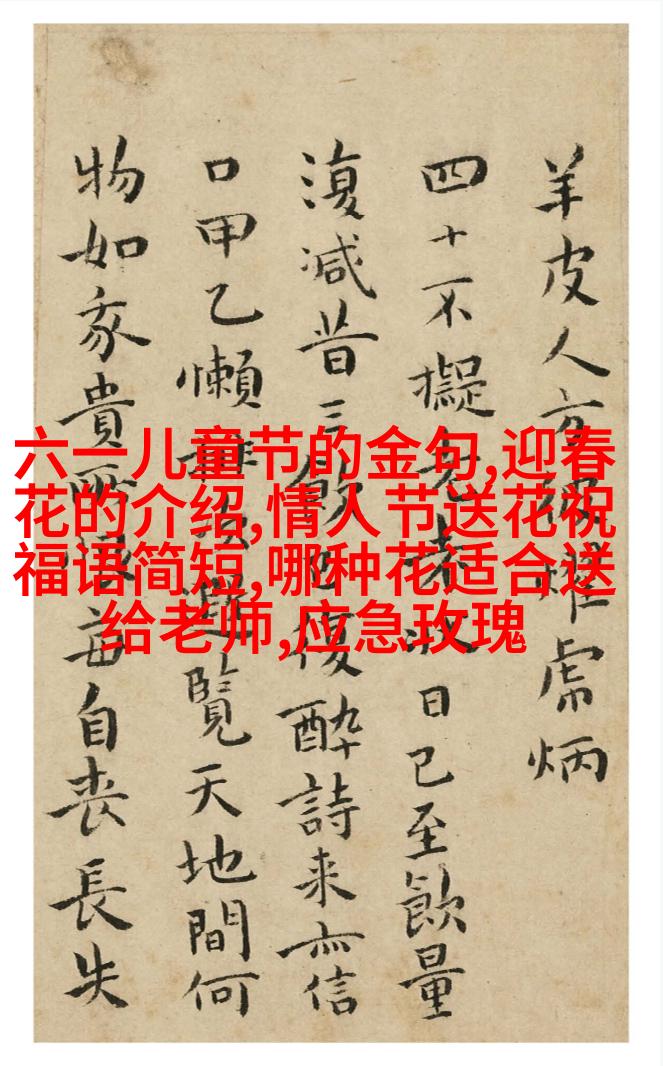 六一儿童节的金句,迎春
花的介绍,情人节送花祝
福语简短,哪种花适合送
给老师,应急玫瑰
羊皮人方虎炳
四十不擬老日已至飲量
復減昔三飲復醉詩来亦信
口甲乙懶覽天地間何
物如我貴自喪長失